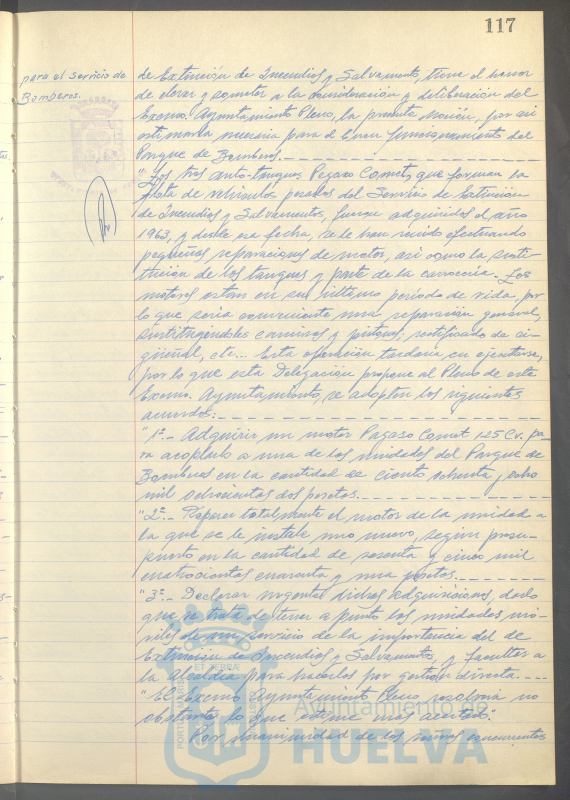 117
para el servicio de
Bomberos.
de Extinción de Incendios y Salvamento, tiene el honor
de elevar y someter a la consideración y deliberación del
Excmo. Ayuntamiento Pleno, la presente Moción, por así
estimarla necesaria para el buen funcionamiento del
Parque de Bomberos.
"Los tres auto-tanques Pegaso Comet, que forman la
flota de vehículos pesados del Servicio de Extinción
de Incendios y Salvamentos, fueron adquiridos el año
1963, y desde esa fecha, se le han venido efectuando
pequeñas reparaciones de motor, así como la susti-
tución de los tanques y parte de la carrocería. Los
motores están en su último período de vida, por
lo que sería conveniente una reparación general,
sustituyéndoles camisas y pistones; rectificado de ci-
güeñal, etc... Esta operación tardaría en ejecutarse,
por lo que esta Delegación propone al Pleno de este
Excmo. Ayuntamiento, se adopten los siguientes
acuerdos:
"1º.- Adquirir un motor Pagaso Comet 125 Cv. pa-
ra acoplarlo a una de las unidades del Parque de
Bomberos en la cantidad de ciento ochenta y ocho
mil ochocientas dos pesetas.
"2º.- Reparar totalmente el motor de la unidad a
la que se le instale uno nuevo, según presu-
puesto en la cantidad de sesenta y cinco mil
cuatrocientas cuarenta y una pesetas.
"3º.- Declarar urgentes dichas adquisiciones, dado
que se trata de tener a punto las unidades mó-
viles de un servicio de la importancia del de
Extinción de Incendios y Salvamentos, y facultar a
la Alcaldía para hacerlos por gestión directa.
"El Excmo Ayuntamiento Pleno resolverá no
obstante lo que estime más acertado."
Por unanimidad de los señores concurrentes
Ayuntamiento de
HUELVA